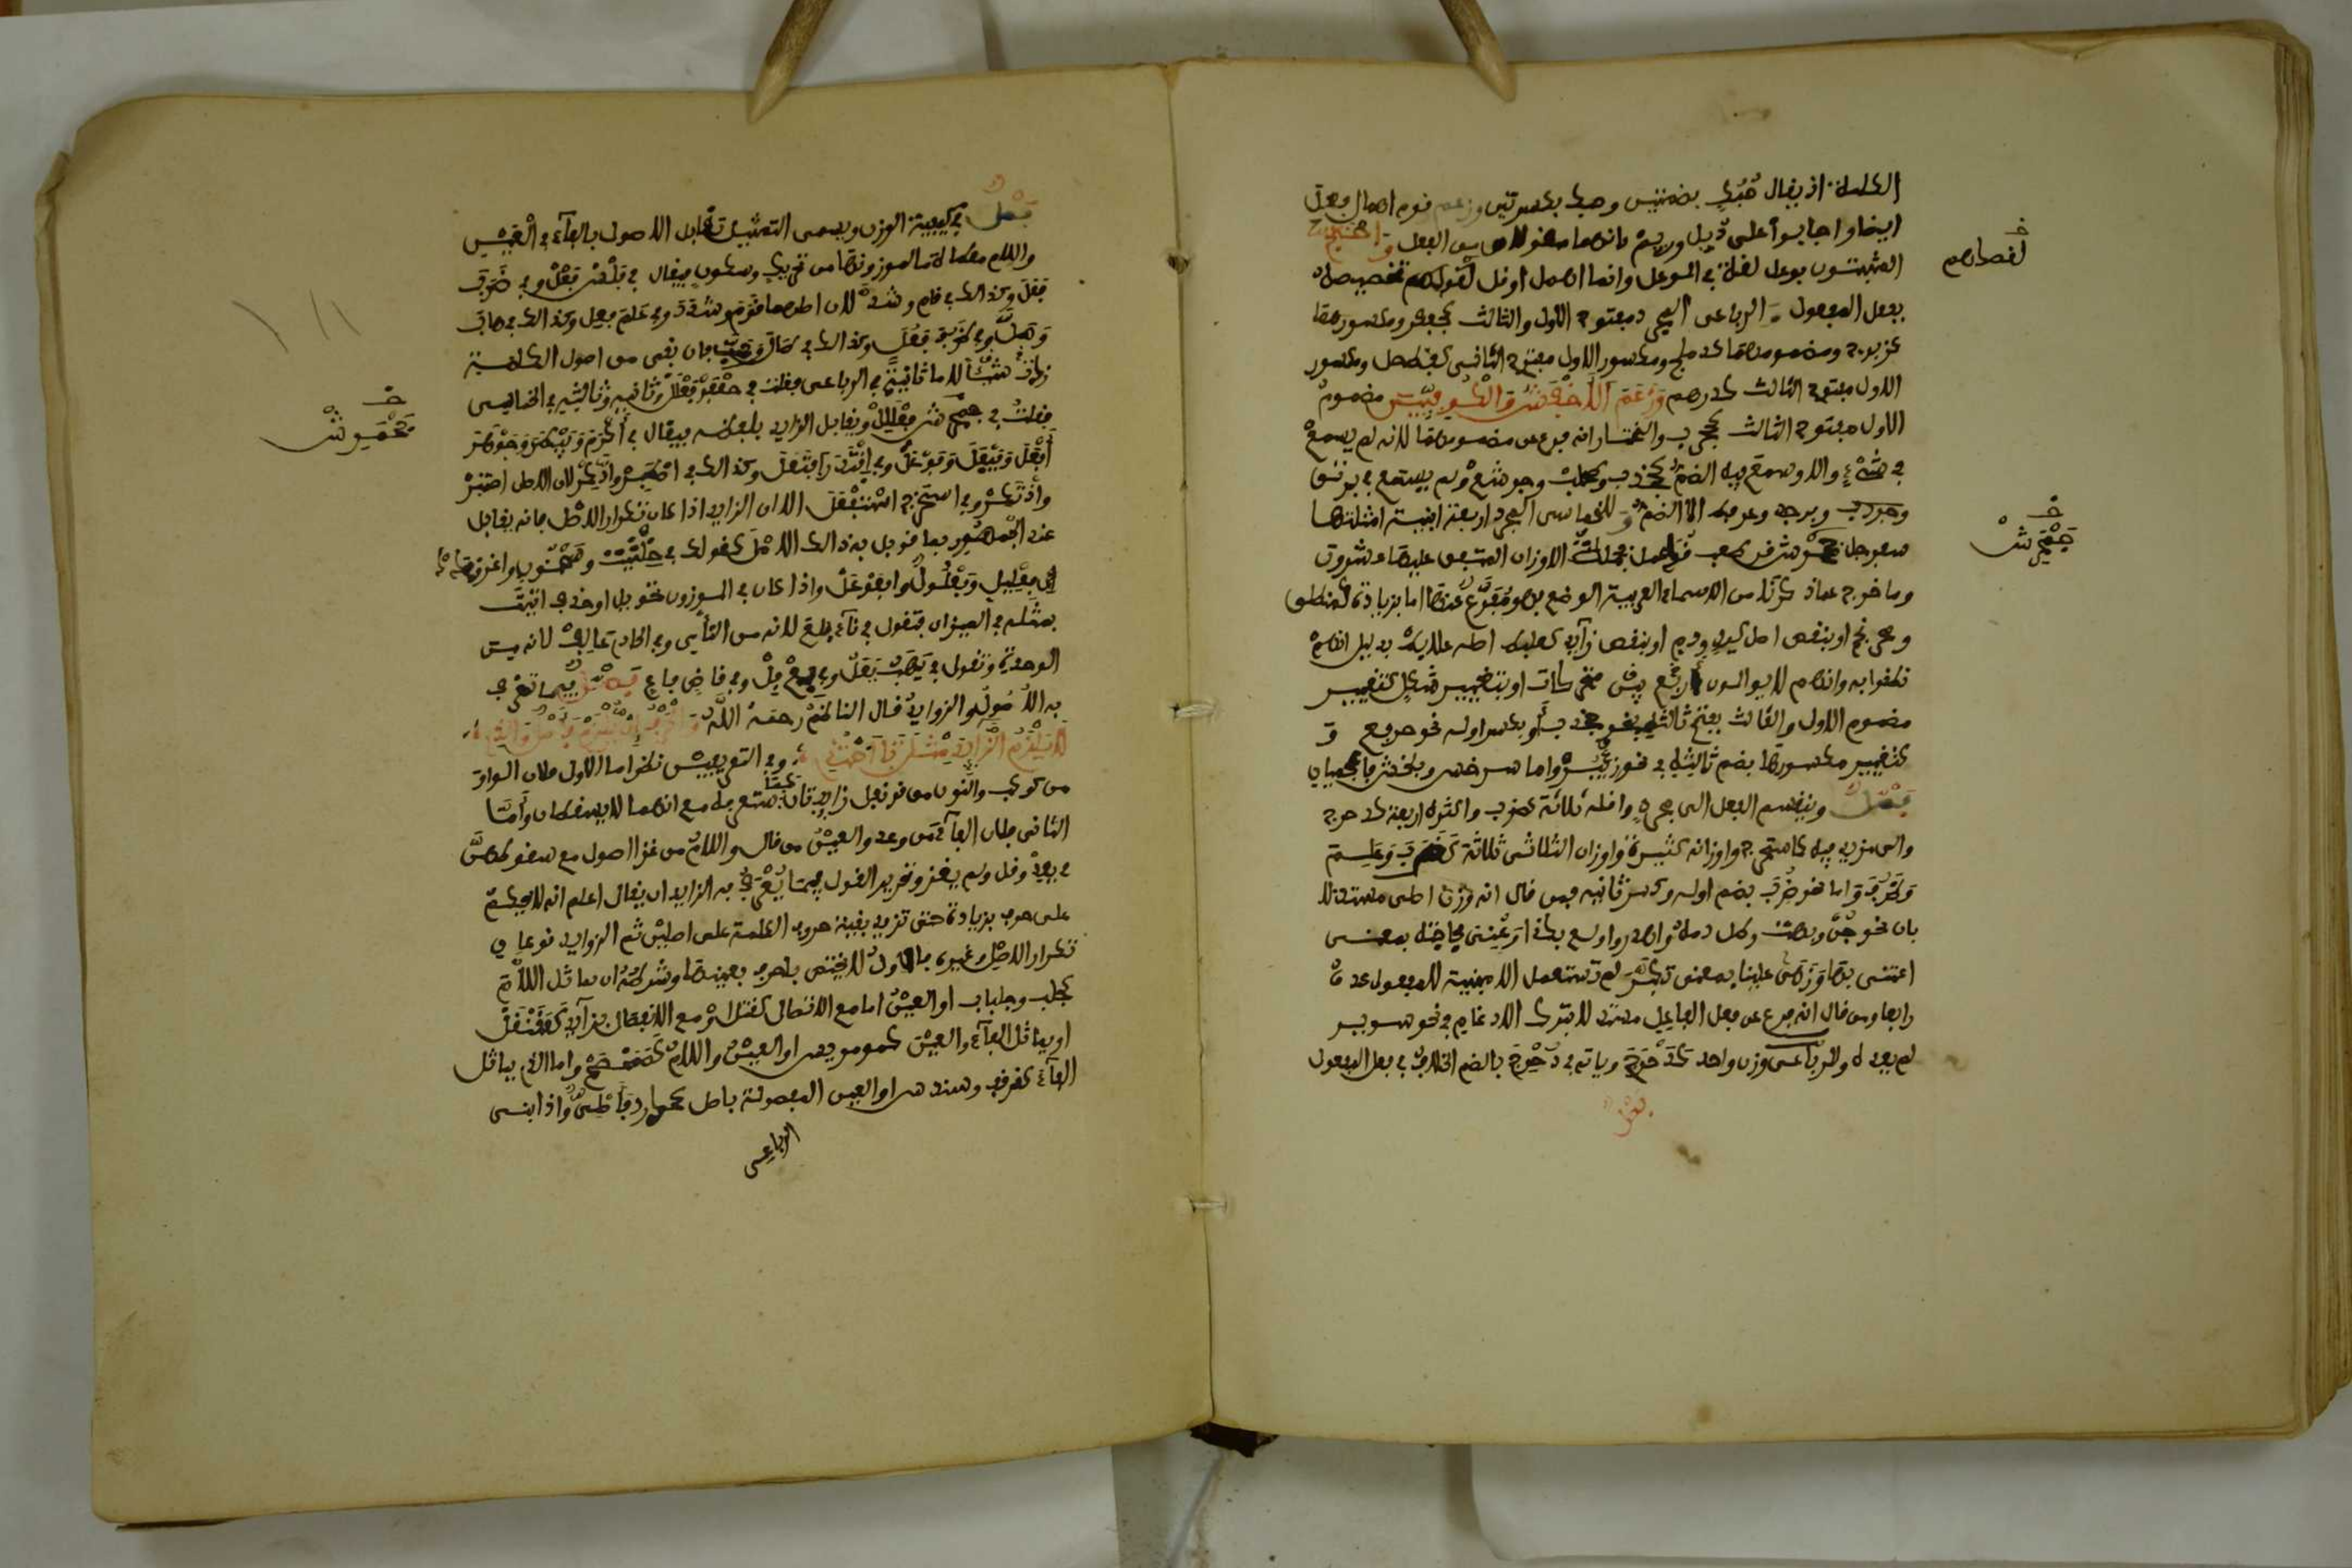 الكلمة اذ يقال حُبُك بضمتين وحبك بكسرتين وزعم قوم اهمال فعل
ايضا واجابوا على دئل ورئم بانهما منقولان من الفعل واحتج
المثبتون بوعل لغة في الوعل وانما اهمل او قل لقصدهم تخصيصه
بفعل المفعول والرباعي المجرد مفتوح الاول والثالث كجعفر ومكسورهما
كزبرج ومضمومهما كدملج ومكسور الاول مفتوح الثاني كفطحل ومكسور
الاول مفتوح الثالث كدرهم وزعم الاخفش والكوفيين مضموم
الاول مفتوح الثالث كجخدب والمختار انه فرع من مضمومهما لانه لم يسمع
في شيء الا وسمع فيه الضم كجخدب وطحلب وجرشع ولم يسمع في برثن
وبرجد وعرفط الا الضم وللخماسي المجرد اربعة ابنية امثلتها
سفرجل جحمرش قرطعب قذعمل فجملة الاوزان المتفق عليها عشرون
وما خرج عما ذكرنا من الاسماء العربية الوضع فهو مفرع عنها اما بزيادة كمنطلق
ومحرنجم او بنقص اصل كيد ودم او بنقص زائد كعلبط اصله علابط بدليل انهم
نطقوا به وانهم لا يوالون اربع متحركات او بتغيير شكل كتغيير
مضموم الاول والثالث بفتح ثالثه نحو جخدب او بكسر اوله نحو خرفع و
كتغيير مكسورهما بضم ثالثه في نحو زئبر واما سرخس وبلخش فاعجميان
فصل وينقسم الفعل الى مجرد واقله ثلاثة كضرب واكثره اربعة كدحرج
والى مزيد فيه كاستخرج واوزانه كثيرة واوزان الثلاثي ثلاثة كضرب وعلم
وظرف واما نحو ضُرب بضم اوله وكسر ثانيه فمن قال انه وزن اصلي مستدلا
بان نحو جن وبهت وطل دمه واهدر واولع بكذا وعني بحاجته بمعنى
اعتنى بها وزهي علينا بمعنى تكبر لم تستعمل الا مبنية للمفعول عده
رابعا ومن قال انه فرع عن فعل الفاعل مستدلا بترك الادغام في نحو سوير
لم يعده وللرباعي وزن واحد كدحرج وياتي في دحرج بالضم الخلاف في فعل المفعول
فصل
لقصدهم
جحمرش
فصل في كيفية الوزن ويسمى التمثيل تقابل الاصول بالفاء والعين
واللام معطاة ما لموزونها من تحريك وسكون فيقال في فلس فعل وفي ضرب
فعل وكذلك في قام وشد لان اصلهما قوم وشدد وفي علم فعل وكذلك في هاب
ومل وفي ظرف فعل وكذلك في طال وحب فان بقي من اصول الكلمة
شيء زدت لاما ثانية في الرباعي فقلت في جعفر فعلل وثانية وثالثة في الخماسي
فقلت في جحمرش فعللل ويقابل الزايد بلفظه فيقال في اكرم وبيطر وجهور
افعل وفيعل وفعول وفي اقتدر افتعل وكذلك في اصطبر وادكر لان الاصل اصتبر
واذتكر وفي استخرج استفعل الا ان الزايد اذا كان تكرارا لاصل فانه يقابل
عند الجمهور بما قوبل به ذلك الاصل كقولك في حلتيت وسحنون واغدودن
فعليل وفعلول وافعوعل واذا كان في الموزون تحويل او حذف اتيت
بمثله في الميزان فتقول في ناء فلع لانه من الناي وفي الحادي عالف لانه من
الوحدة وتقول في يهب يعل وفي بع فل وفي قاض فاع فصل فيما تعرف
به الاصول والزوايد قال الناظم رحمه الله والحرف ان يلزم فاصل والذي
لا يلزم الزايد مثل تا احتذي وفي التعريفين نظر اما الاول فلان الواو
من كوكب والنون من قرنفل زايدتان كما ستعرفه مع انهما لا يسقطان واما
الثاني فلان الفاء من وعد والعين من قال واللام من غزا اصول مع سقوطهن
في يعد وقل ولم يغز وتحرير القول فيما يعرف به الزايد ان يقال اعلم انه لا يحكم
على حرف بزيادة حتى تزيد بقية حروف الكلمة على اصلين ثم الزايد نوعان
تكرار لاصل وغيره فالاول لا يختص باحرف بعينها وشرطه ان يماثل اللام
كجلبب وجلباب او العين اما مع الاتصال كقتل او مع الانفصال بزائد كعقنقل
او يماثل الفاء والعين كمرمريس او العين واللام كصمحمح واما الذي يماثل
الفاء كقرقف وسندس او العين المفصولة باصل كحدرد فاصلي واذا بني
الرباعي
جحمرش